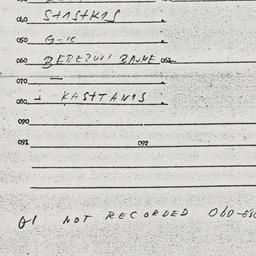 040 STASTKAS
050 G-1c
060 BEREZOVI BAUME 062
070 —
080 - KASTTANAS
090
091 092
Q1 NOT RECORDED 060-080